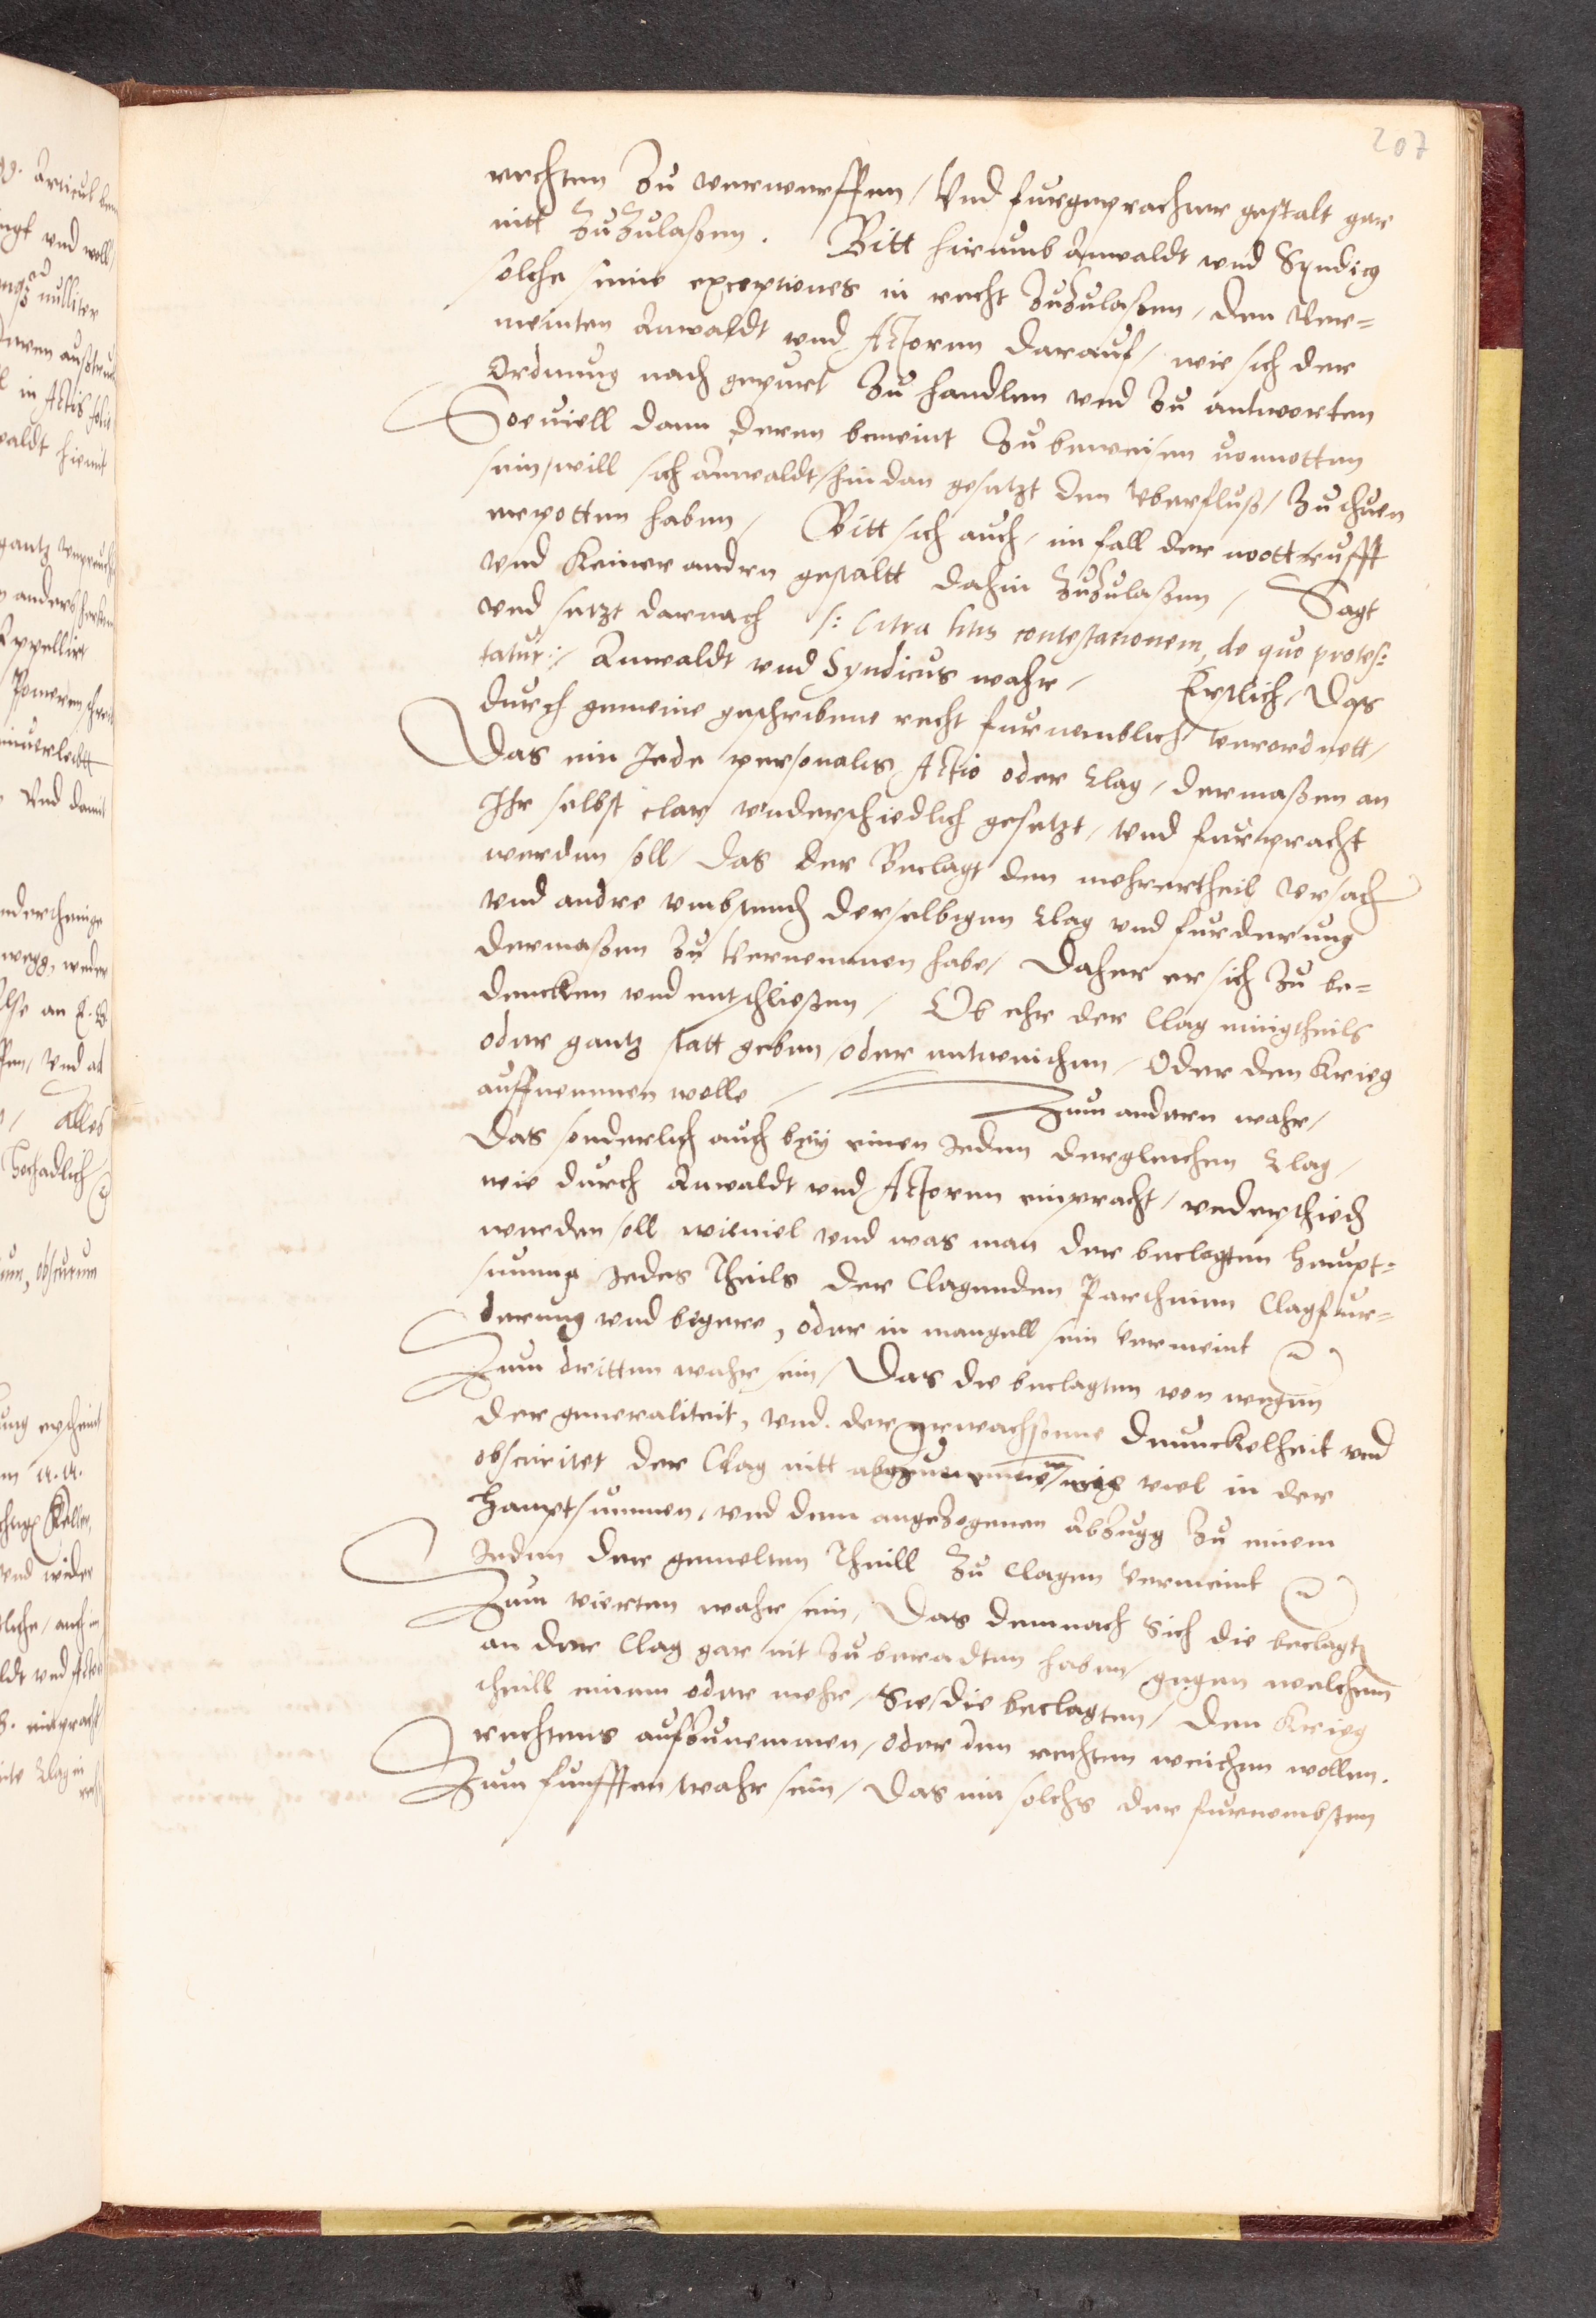 207
rechten zu verwerffen / Vnd furgeprachter gestalt gar
nitt zuzulaßen. Bitt hirumb Anwaldt vnd Syndicq
solche seine exceptiones in recht zuzulaßen, den Ver=
meinten Anwaldt vnd Actoren darauf, wie sich der
Ordnung nach gepurt zu handlen vnd zu antworten
Soeuiell dann deren bemeint zu beweisen vonnotten
sein, will sich Anwaldt, hindan gesetzt den Vberfluß, zu thuen
erpotten haben, Bitt sich auch, im fall der notturfft
vnd keiner andren gestaltt dahin zuzulaßen, Sagt
vnd setzt darnach /: Citra litis contestationem, de quo protes:
tatur :/ Anwaldt vnd Syndicus wahr, Erstlich, Das
durch gemeine geschribene recht furnemblich verordnett,
Das ein Jede personalis Actio oder Clag, dermaßen an
Ihr selbst clar vnderschiedlich gesetzt, vnd furpracht
werden soll, das der Beclagt den mehrertheil Vrsach
vnd andre vmbstend derselbigen Clag vnd furderung
dermaßen zu Vernemmen habe, Daher er sich zu be=
dencken vnd entschließen, Ob ehr der Clag einigtheils
oder gantz statt geben, oder entweichen, Oder den Krieg
auffnemmen wolle, Zum andern wahr,
Das sonderlich auch bey einen Jeden dergleichen Clag,
wie durch Anwaldt vnd Actoren einpracht, vnderschied
werden soll wieuiel vnd was man der beclagten haupt=
summa Jedes Theils der Clagenden Partheien Clagfur=
derung vnd begere, oder in mangell sein vermeint
Zum dritten wahr sein, Das die beclagten von wegen
der generaliteit, vnd der erwachssenne dunckelheit vnd
obscuritet der Clag nitt abzunemmen, wie viel in der
hauptsummen, vnd dem angezogenen Abzugg zu einem
Jeden der gemelten Theill zu Clagen vermeint
Zum vierten wahr sein, Das demnach Sich die beclagte
an der Clag gar nit zu beradten haben, gegen welchem
theill einem oder mehr, Sie, die beclagten, den Krieg
rechtens aufzunemmen, oder dem rechten weichen wollen.
Zum funfften wahr sein, Das ein solchs der furnembsten